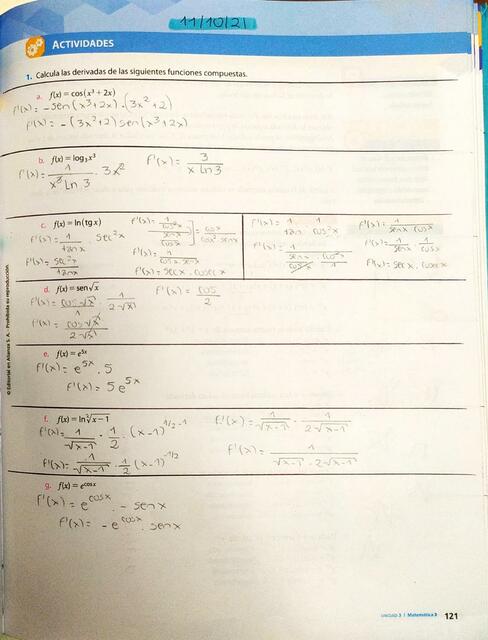 11/10/21
ACTIVIDADES
1. Calcula las derivadas de las siguientes funciones compuestas.
a. f(x) = cos (x³ + 2x)
f'(x) = -sen(x³+2x) · (3x²+2)
f'(x) = -(3x²+2) sen(x³+2x)
b. f(x) = log₃ x³
f'(x) = 1/(x³ Ln 3) · 3x²
f'(x) = 3/(x Ln 3)
c. f(x) = ln (tg x)
f'(x) = 1/tanx · sec²x
f'(x) = sec²x/tanx
f'(x) = (1/cos²x)/(senx/cosx) = cosx/(cos²x · senx)
f'(x) = 1/(cosx · senx)
f'(x) = secx · cosecx
f'(x) = 1/tanx · 1/cos²x
f'(x) = 1/(senx/cosx · cos²x/1)
f'(x) = 1/(senx · cosx)
f'(x) = 1/senx · 1/cosx
f'(x) = secx · cosecx
d. f(x) = sen √x
f'(x) = cos √x/1 · 1/(2√x)
f'(x) = cos√x/(2√x)
f'(x) = cos/2
e. f(x) = e⁵ˣ
f'(x) = e⁵ˣ · 5
f'(x) = 5e⁵ˣ
f. f(x) = ln ²√(x − 1)
f'(x) = 1/√(x-1) · 1/2 · (x-1)^(1/2 - 1)
f'(x) = 1/√(x-1) · 1/2 (x-1)^(-1/2)
f'(x) = 1/√(x-1) · 1/(2√(x-1))
f'(x) = 1/(√(x-1) · 2√(x-1))
g. f(x) = e^(cos x)
f'(x) = e^(cosx) · - senx
f'(x) = -e^(cosx) · senx
© Editorial en Alianza S. A. - Prohibida su reproducción.
UNIDAD 3 | Matemática 3 121